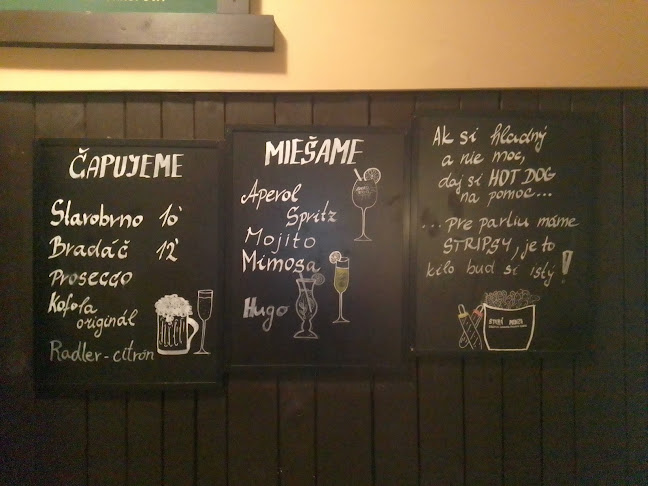 ČAPUJEME
Starobrno 10°
Bradáč 12°
Prosecco
Kofola
originál
Radler-citrón
MIEŠAME
Aperol
Spritz
Mojito
Mimosa
Hugo
Ak si hladný
a nie moc,
daj si HOT DOG
na pomoc...
...pre partiu máme
STRIPSY, je to
kilo buď si istý!